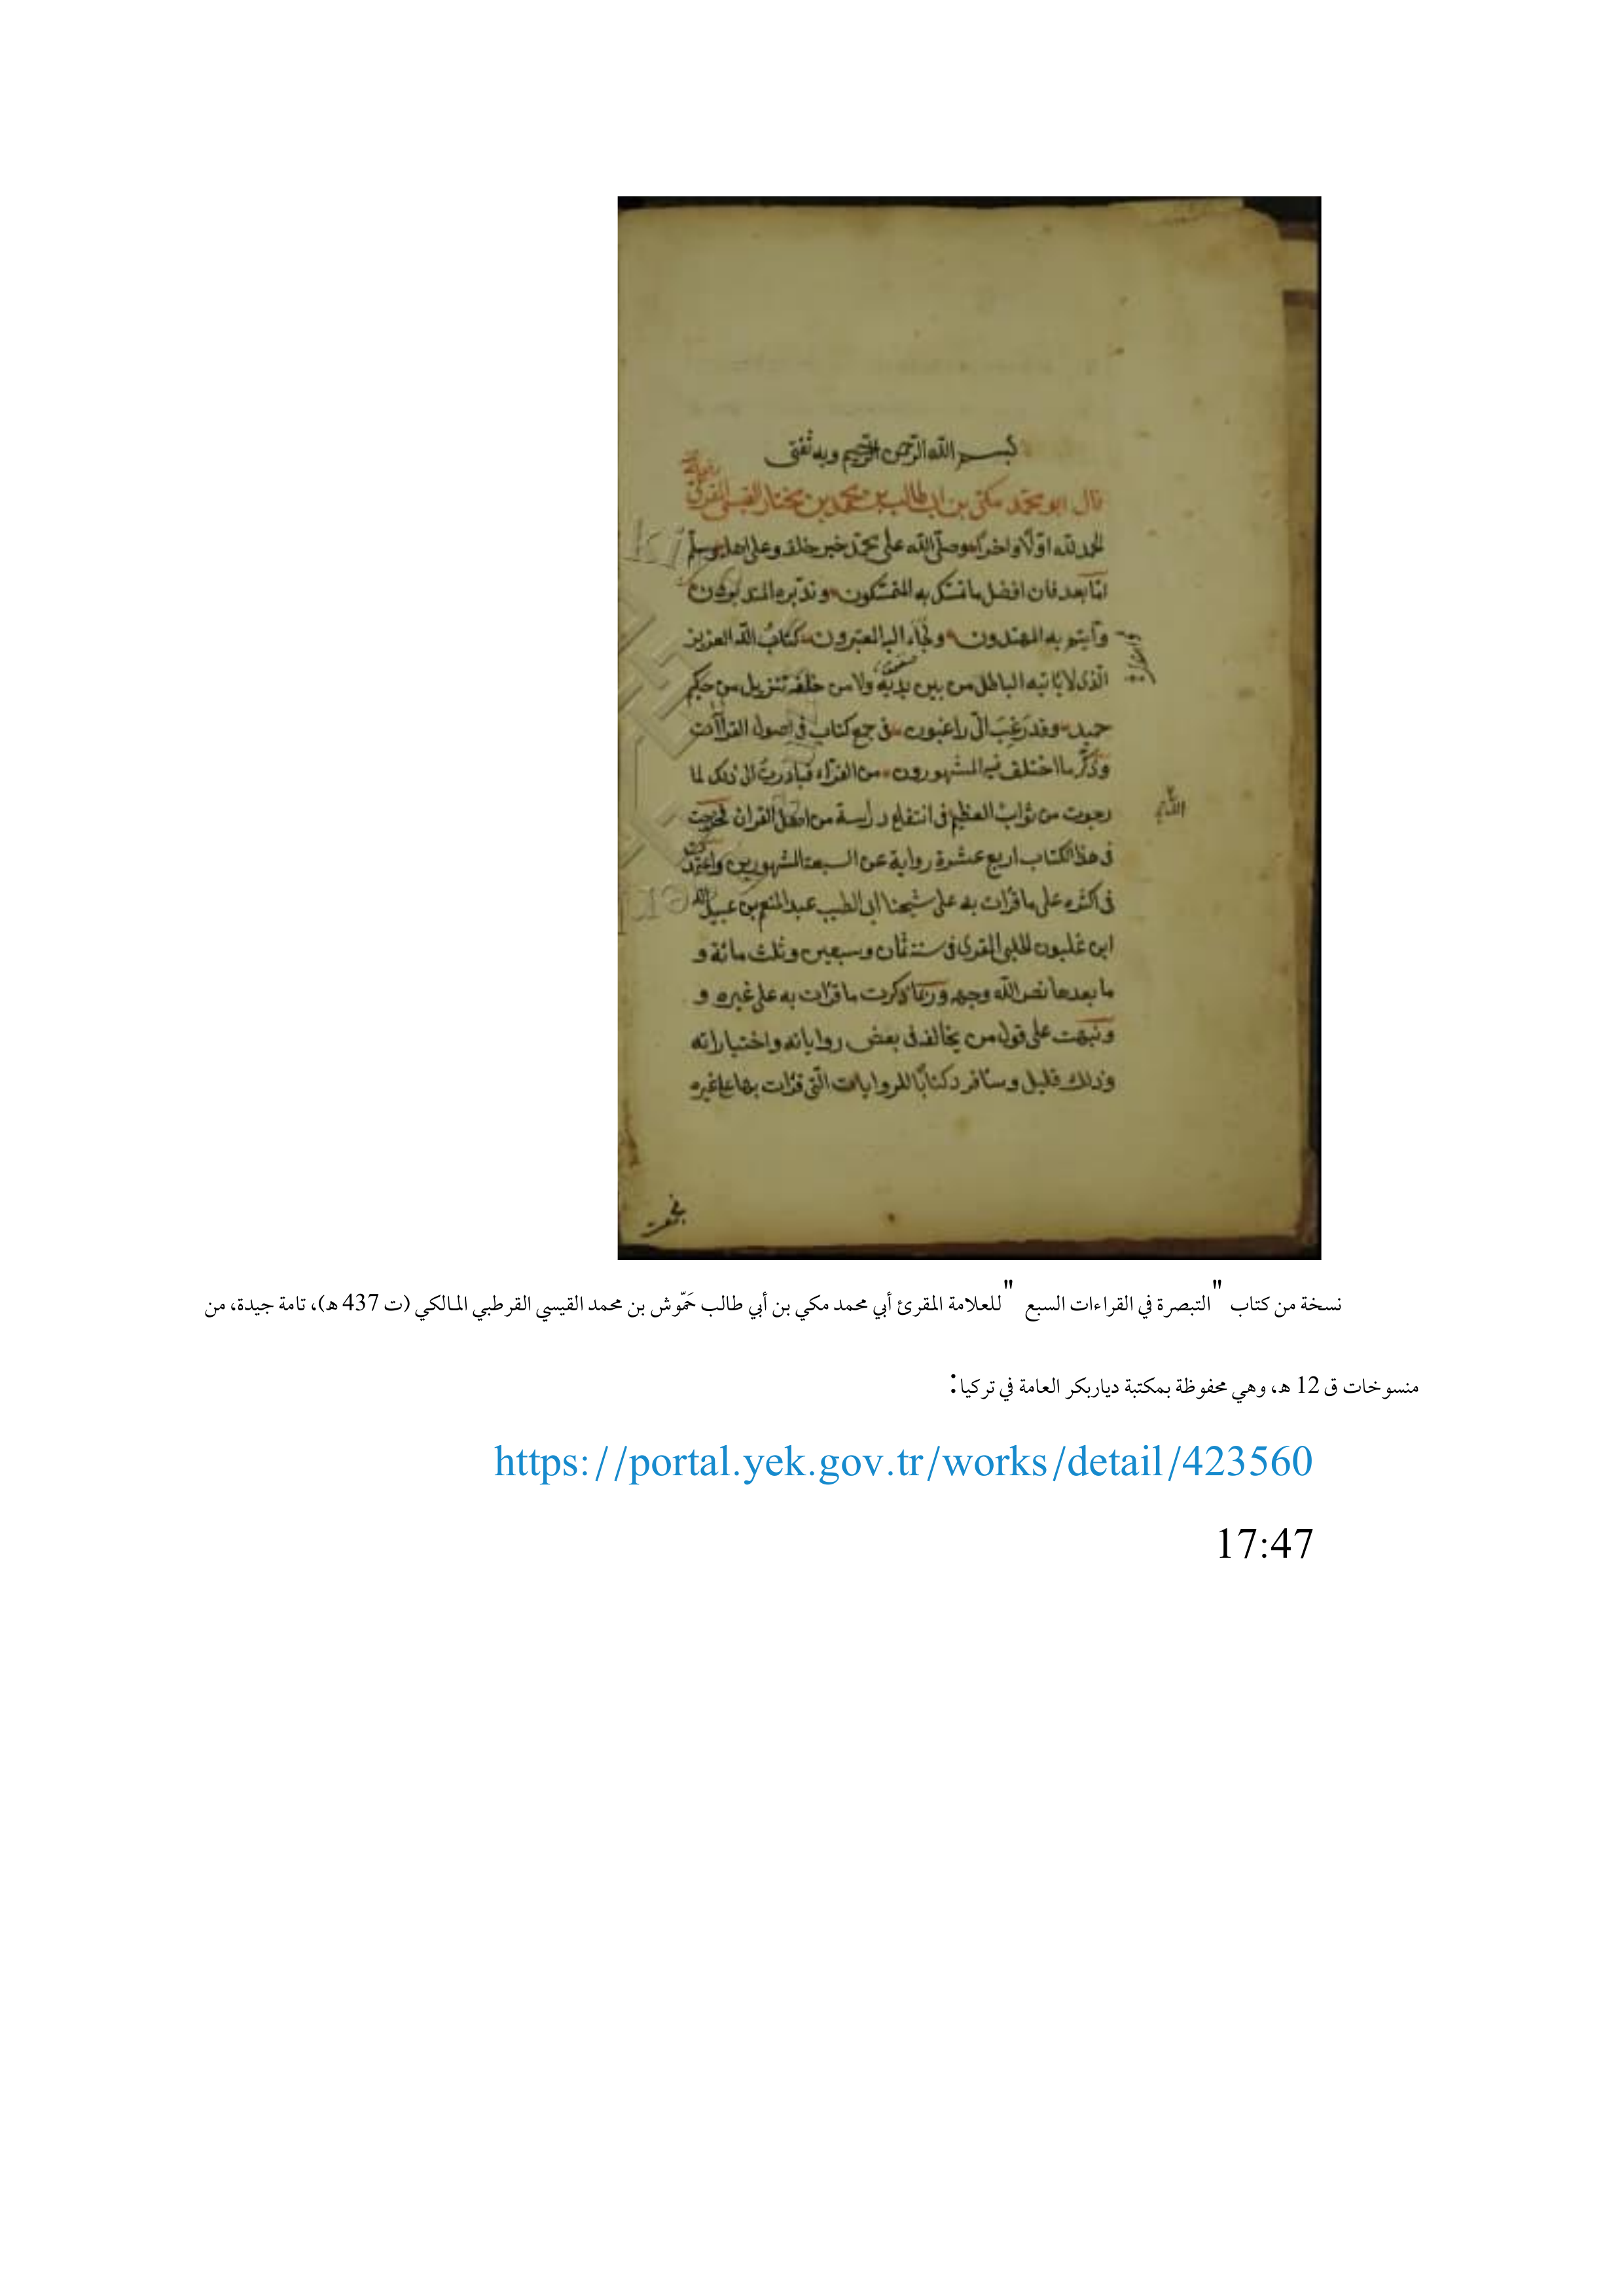 بسم الله الرحمن الرحيم وبه ثقتى
قال ابو محمد مكي بن ابى طالب بن محمد بن مختار القيسى المقرئ
الحمد لله اوّلا واخرا وصلّى الله على محمّد خير خلقه وعلى اهله وسلّم
امّا بعد فان افضل ما تمسّك به المتمسّكون وتدبّره المتدبّرون
وأيتم به المهتدون ولجاء اليه المعتبرون كتابُ الله العزيز
الّذى لا يأتيه الباطل من بين يديه ولا من خلفه تنزيل من حكيم
حميد وقد رَغِبَ الىّ راغبون فى جمع كتاب فى اصول القراآت
وذكر ما اختلف فيه المشهورون من القرّاء فبادرت الى ذلك لما
رجوت من ثواب العظيم فى انتفاع دراسة من اهل القران فخرجت
فى هذا الكتاب اربع عشرة رواية عن السبعة المشهورين واعتمدت
فى اكثره على ما قرات به على شيخنا ابى الطيب عبد المنعم بن عبيد الله
ابن غلبون الحلبى المقرى فى سنة ثمان وسبعين وثلث مائة و
ما بعدها نضر الله وجهه وربّما ذكرت ما قرات به على غيره و
ونبهت على قول من يخالفه فى بعض رواياته واختياراته
وذلك قليل وسافرد كتابًا للروايات الّتى قرات بها على غيره
نسخة من كتاب "التبصرة في القراءات السبع " للعلامة المقرئ أبي محمد مكي بن أبي طالب حَمّوش بن محمد القيسي القرطبي المالكي (ت 437 هـ)، تامة جيدة، من
منسوخات ق 12 هـ، وهي محفوظة بمكتبة دياربكر العامة في تركيا:
https://portal.yek.gov.tr/works/detail/423560
17:47